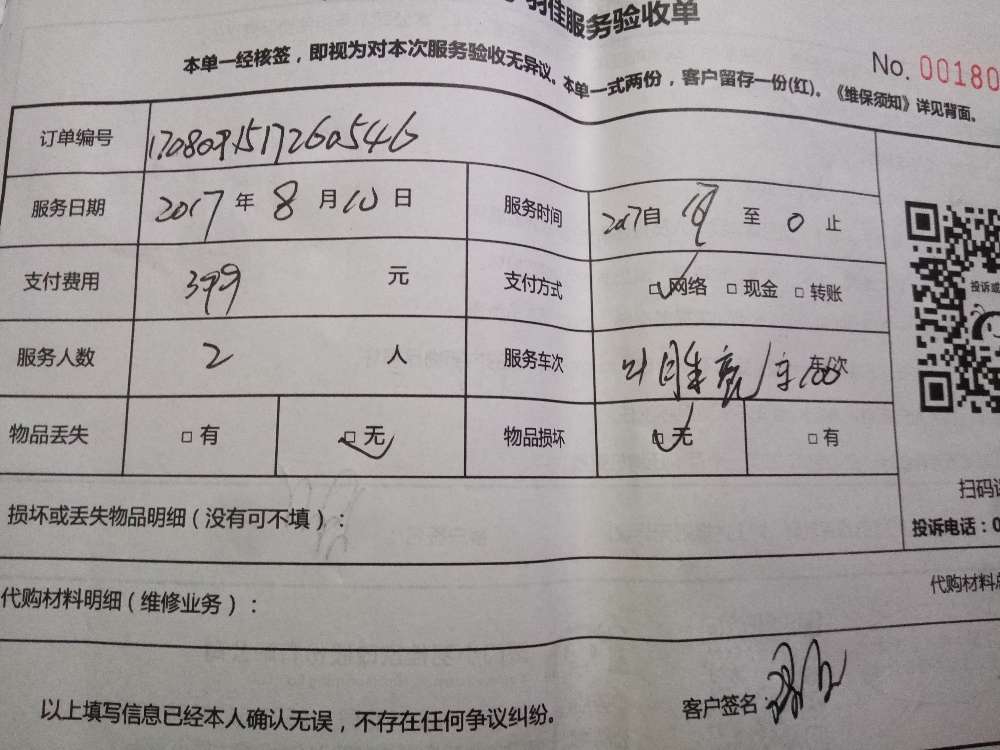 羽佳服务验收单
本单一经核签，即视为对本次服务验收无异议。本单一式两份，客户留存一份(红)。《维保须知》详见背面。
No. 00180
订单编号
服务日期 2017 年 8 月 10 日 服务时间 2017自 至 0 止
支付费用 399 元 支付方式 □网络 □现金 □转账
投诉或
服务人数 2 人 服务车次 车次
物品丢失 □有 □无 物品损坏 □无 □有
扫码
损坏或丢失物品明细（没有可不填）：
投诉电话：0
代购材料明细（维修业务）：
代购材料
以上填写信息已经本人确认无误，不存在任何争议纠纷。
客户签名：